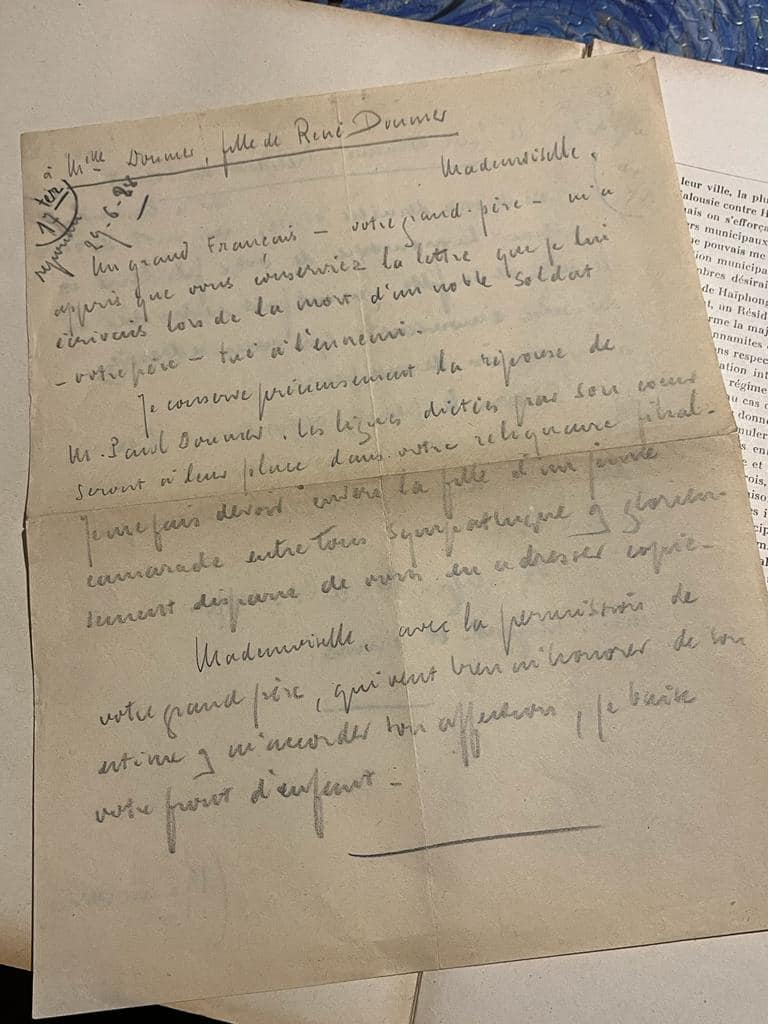 à Mlle Doumer, fille de René Doumer
(17 ter)
29-6-28
Mademoiselle,
Un grand Français – votre grand-père – m'a
appris que vous conserviez la lettre que je lui
écrivais lors de la mort d'un noble soldat
– votre père – tué à l'ennemi.
Je conserve précieusement la réponse de
M. Paul Doumer. Les lignes dictées par son coeur
seront à leur place dans votre reliquaire filial.
Je me fais devoir envers la fille d'un jeune
camarade entre tous sympathique & glorieu-
sement disparu de vous en adresser copie –
Mademoiselle, avec la permission de
votre grand père, qui veut bien m'honorer de son
estime & m'accorder son affection, je baise
votre front d'enfant –
leur ville, la plu
alousie contre H
ais on s'efforça
rs municipaux
e pouvais me
on municipa
mbres désirai
de Haïphong
t, un Résid
rme la maj
nnamites
ns respec
ation int
régime
au cas
donne
nuler
s en
e et